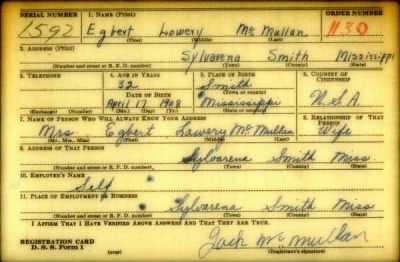 SERIAL NUMBER 1. NAME (Print) ORDER NUMBER
1592 Egbert Lowery Mc Mullan 1130
(First) (Middle) (Last)
2. ADDRESS (Print)
Sylvarena Smith Mississippi
(Number and street or R. F. D. number) (Town) (County) (State)
3. TELEPHONE 4. AGE IN YEARS 5. PLACE OF BIRTH 6. COUNTRY OF CITIZENSHIP
32 Smith
DATE OF BIRTH (Town or county)
April 17 1908 Mississippi U.S.A.
(Exchange) (Number) (Mo.) (Day) (Yr.) (State or country)
7. NAME OF PERSON WHO WILL ALWAYS KNOW YOUR ADDRESS 8. RELATIONSHIP OF THAT PERSON
Mrs. Egbert Lowery McMullan Wife
(Mr., Mrs., Miss) (First) (Middle) (Last)
9. ADDRESS OF THAT PERSON
Sylvarena Smith Miss
(Number and street or R. F. D. number) (Town) (County) (State)
10. EMPLOYER'S NAME
Self
11. PLACE OF EMPLOYMENT OR BUSINESS
Sylvarena Smith Miss
(Number and street or R. F. D. number) (Town) (County) (State)
I AFFIRM THAT I HAVE VERIFIED ABOVE ANSWERS AND THAT THEY ARE TRUE.
REGISTRATION CARD Jack McMullan
D. S. S. Form 1 (over) (Registrant's signature)